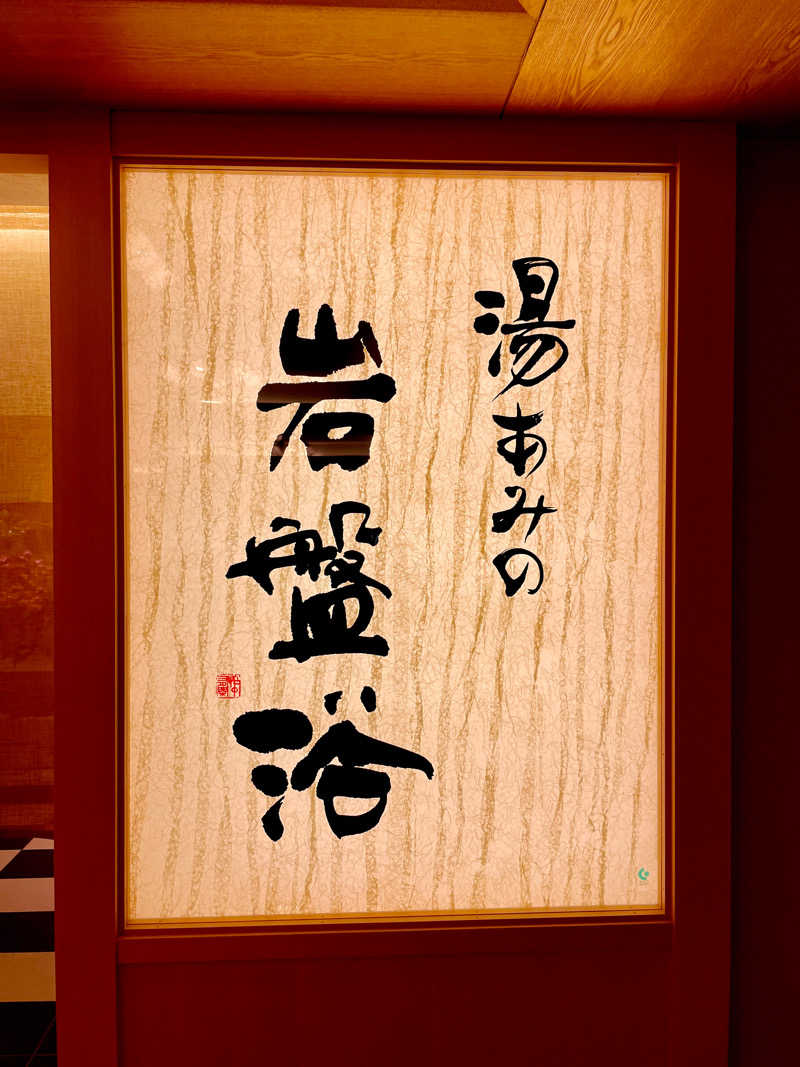 湯あみの
岩盤浴